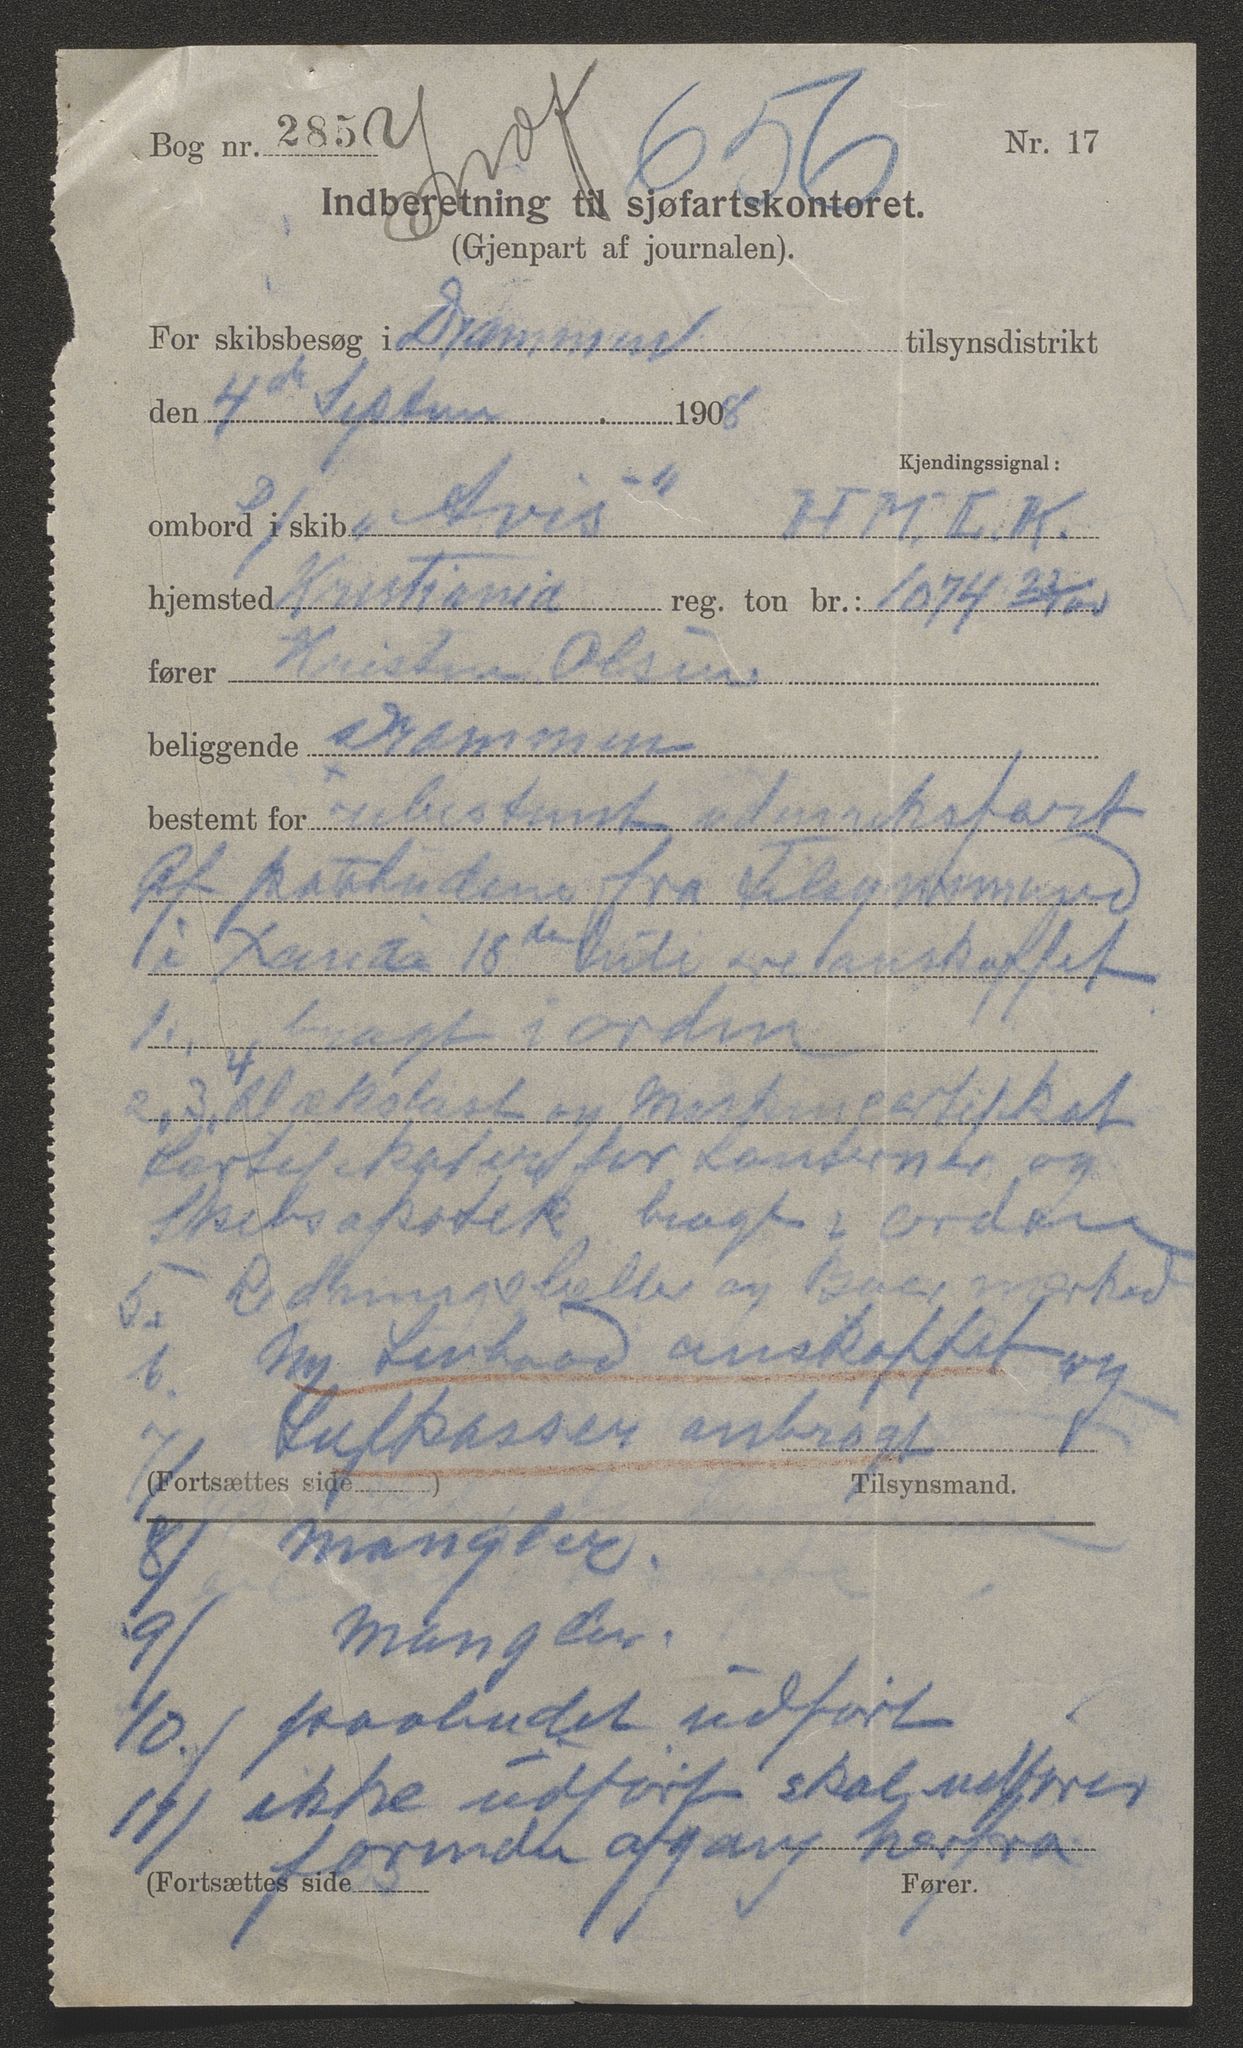 656
Bog nr. 285 Nr. 17
Indberetning til sjøfartskontoret.
(Gjenpart af journalen).
For skibsbesøg i Drammen tilsynsdistrikt
den 4de Septem 1908
Kjendingssignal:
ombord i skib S/ "Avis" H M. L. K.
hjemsted Kristiania reg. ton br.: 1074
fører Kristen Olsen
beliggende Drammen
bestemt for ubestemt udenriksfart
Af paabudene fra Tilsynsmand
i 18de ere anskaffet
1. bragt i orden
2, 3, 4 Dækslast og Maskincertifikat
Certifikater for Lanterner og
Skibsapotek bragt i orden
5. Redningsbelter og Bøier merked
6. Ny Livbaad anskaffet og
7/ Luftkasser anbragt
(Fortsættes side ) Tilsynsmand.
8/ mangler.
9/ Mangler.
10./ paabudet udført
11/ ikke udført skal udføres
forinden afgang herfra
(Fortsættes side Fører.